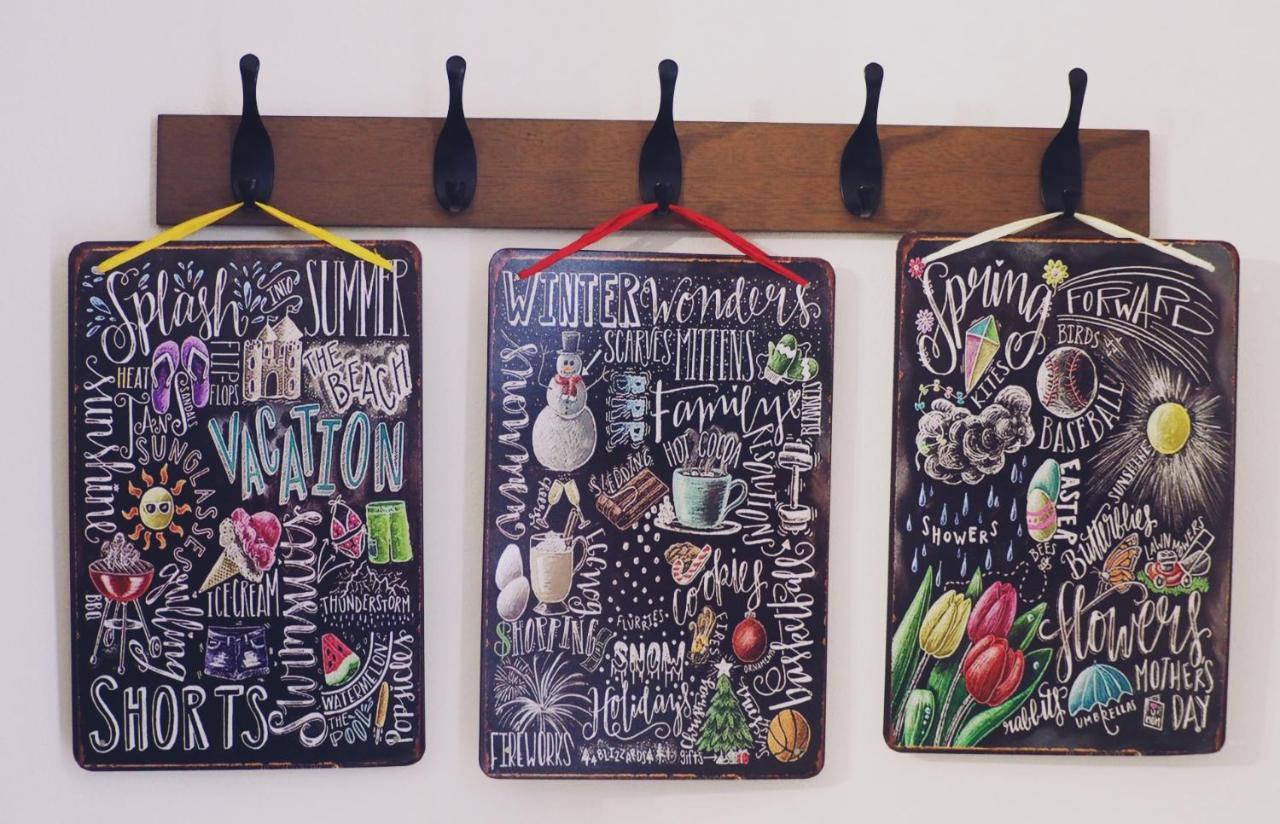 Splash INTO SUMMER
HEAT
SANDAL
FLIP-
FLOPS
THE
BEACH
sunshine
TANS
SUNGLASSES
VACATION
BBQ
Grilling
ICECREAM
Swimming
THUNDERSTORM
WATERMELON
THE
POOL
Popsicles
SHORTS
WINTER Wonders
SCARVES MITTENS
Snowmen
BRR
Family
HOT COCOA
SLEDDING
cheers
Eggnog
Cookies
RESOLUTIONS
basketball
SHOPPING
FLURRIES
FIRE
ORNAMENT
SNOW
Holidays
christmas
trees
FIREWORKS
BLIZZARDS
gifts
Spring FORWARD
BIRDS
KITES
BASEBALL
SUNSHINE
SHOWERS
EASTER
BEES
Butterflies
LAWN MOWERS
flowers
rabbits
UMBRELLAS
MOTHER'S
DAY